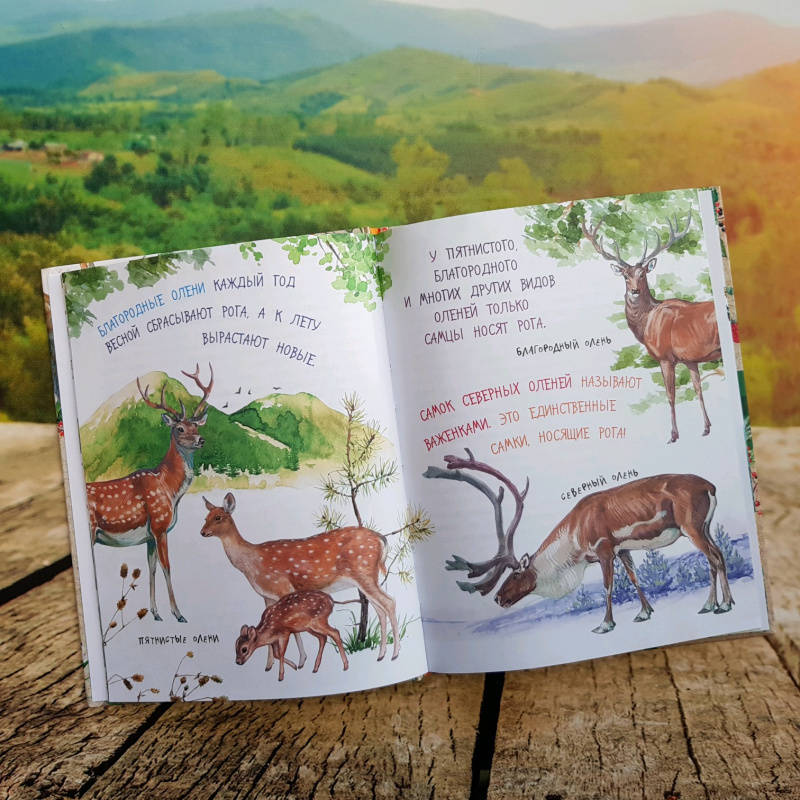 БЛАГОРОДНЫЕ ОЛЕНИ КАЖДЫЙ ГОД
ВЕСНОЙ СБРАСЫВАЮТ РОГА, А К ЛЕТУ
ВЫРАСТАЮТ НОВЫЕ.
ПЯТНИСТЫЕ ОЛЕНИ
У ПЯТНИСТОГО,
БЛАГОРОДНОГО
И МНОГИХ ДРУГИХ ВИДОВ
ОЛЕНЕЙ ТОЛЬКО
САМЦЫ НОСЯТ РОГА.
БЛАГОРОДНЫЙ ОЛЕНЬ
САМОК СЕВЕРНЫХ ОЛЕНЕЙ НАЗЫВАЮТ
ВАЖЕНКАМИ. ЭТО ЕДИНСТВЕННЫЕ
САМКИ, НОСЯЩИЕ РОГА!
СЕВЕРНЫЙ ОЛЕНЬ